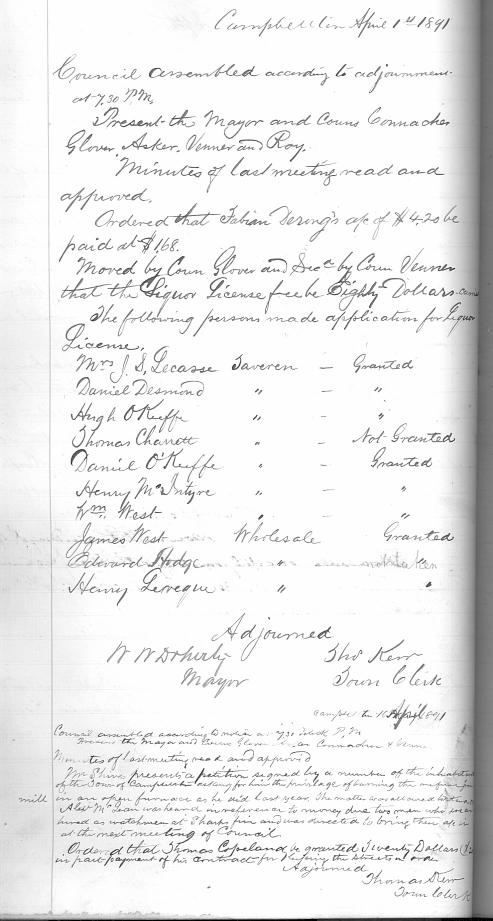 Campbellton April 1st 1891
Council assembled according to adjournment
at 7.30 P.M.
Present the Mayor and Couns Connacher
Glover Asker. Venner and Roy.
Minutes of last meeting read and
approved.
Ordered that Fabian Dering's a/c of $4.20 be
paid at $1.68.
Moved by Coun Glover and Secd by Coun Venner
that the Liquor License fee be Eighty Dollars
The following persons made application for Liquor
License.
Mrs J. S, Lecasse Taveren - Granted
Daniel Desmond " - "
Hugh O'Keeffe " - "
Thomas Charrett " - Not Granted
Daniel O'Keeffe " - Granted
Henry McIntyre " - "
Wm West " - "
James West Wholesale Granted
Edward Hodge " "
Henry Leveque " "
Adjourned
W W Doherty Thos Kerr
Mayor Town Clerk
April 1891
Council assembled according to at 7.30 P.M.
Present the Mayor and Couns Glover Connacher &
Minutes of last meeting read and approved
Mr Shive presents a petition signed by a number of the inhabitants
of the Town of Campbellton asking for him the privilage of burning the refuse from
mill in an open furnace as he did last year. The matter was allowed
Alex McLean was heard in reference to money due two men who
hired as watchmen at Sharps fire and was directed to bring their a/c in
at the next meeting of Council.
Ordered that Thomas Copeland be granted Twenty Dollars
in part payment of his contract for Keeping the Streets in order
Adjourned
Thomas Kerr
Town Clerk